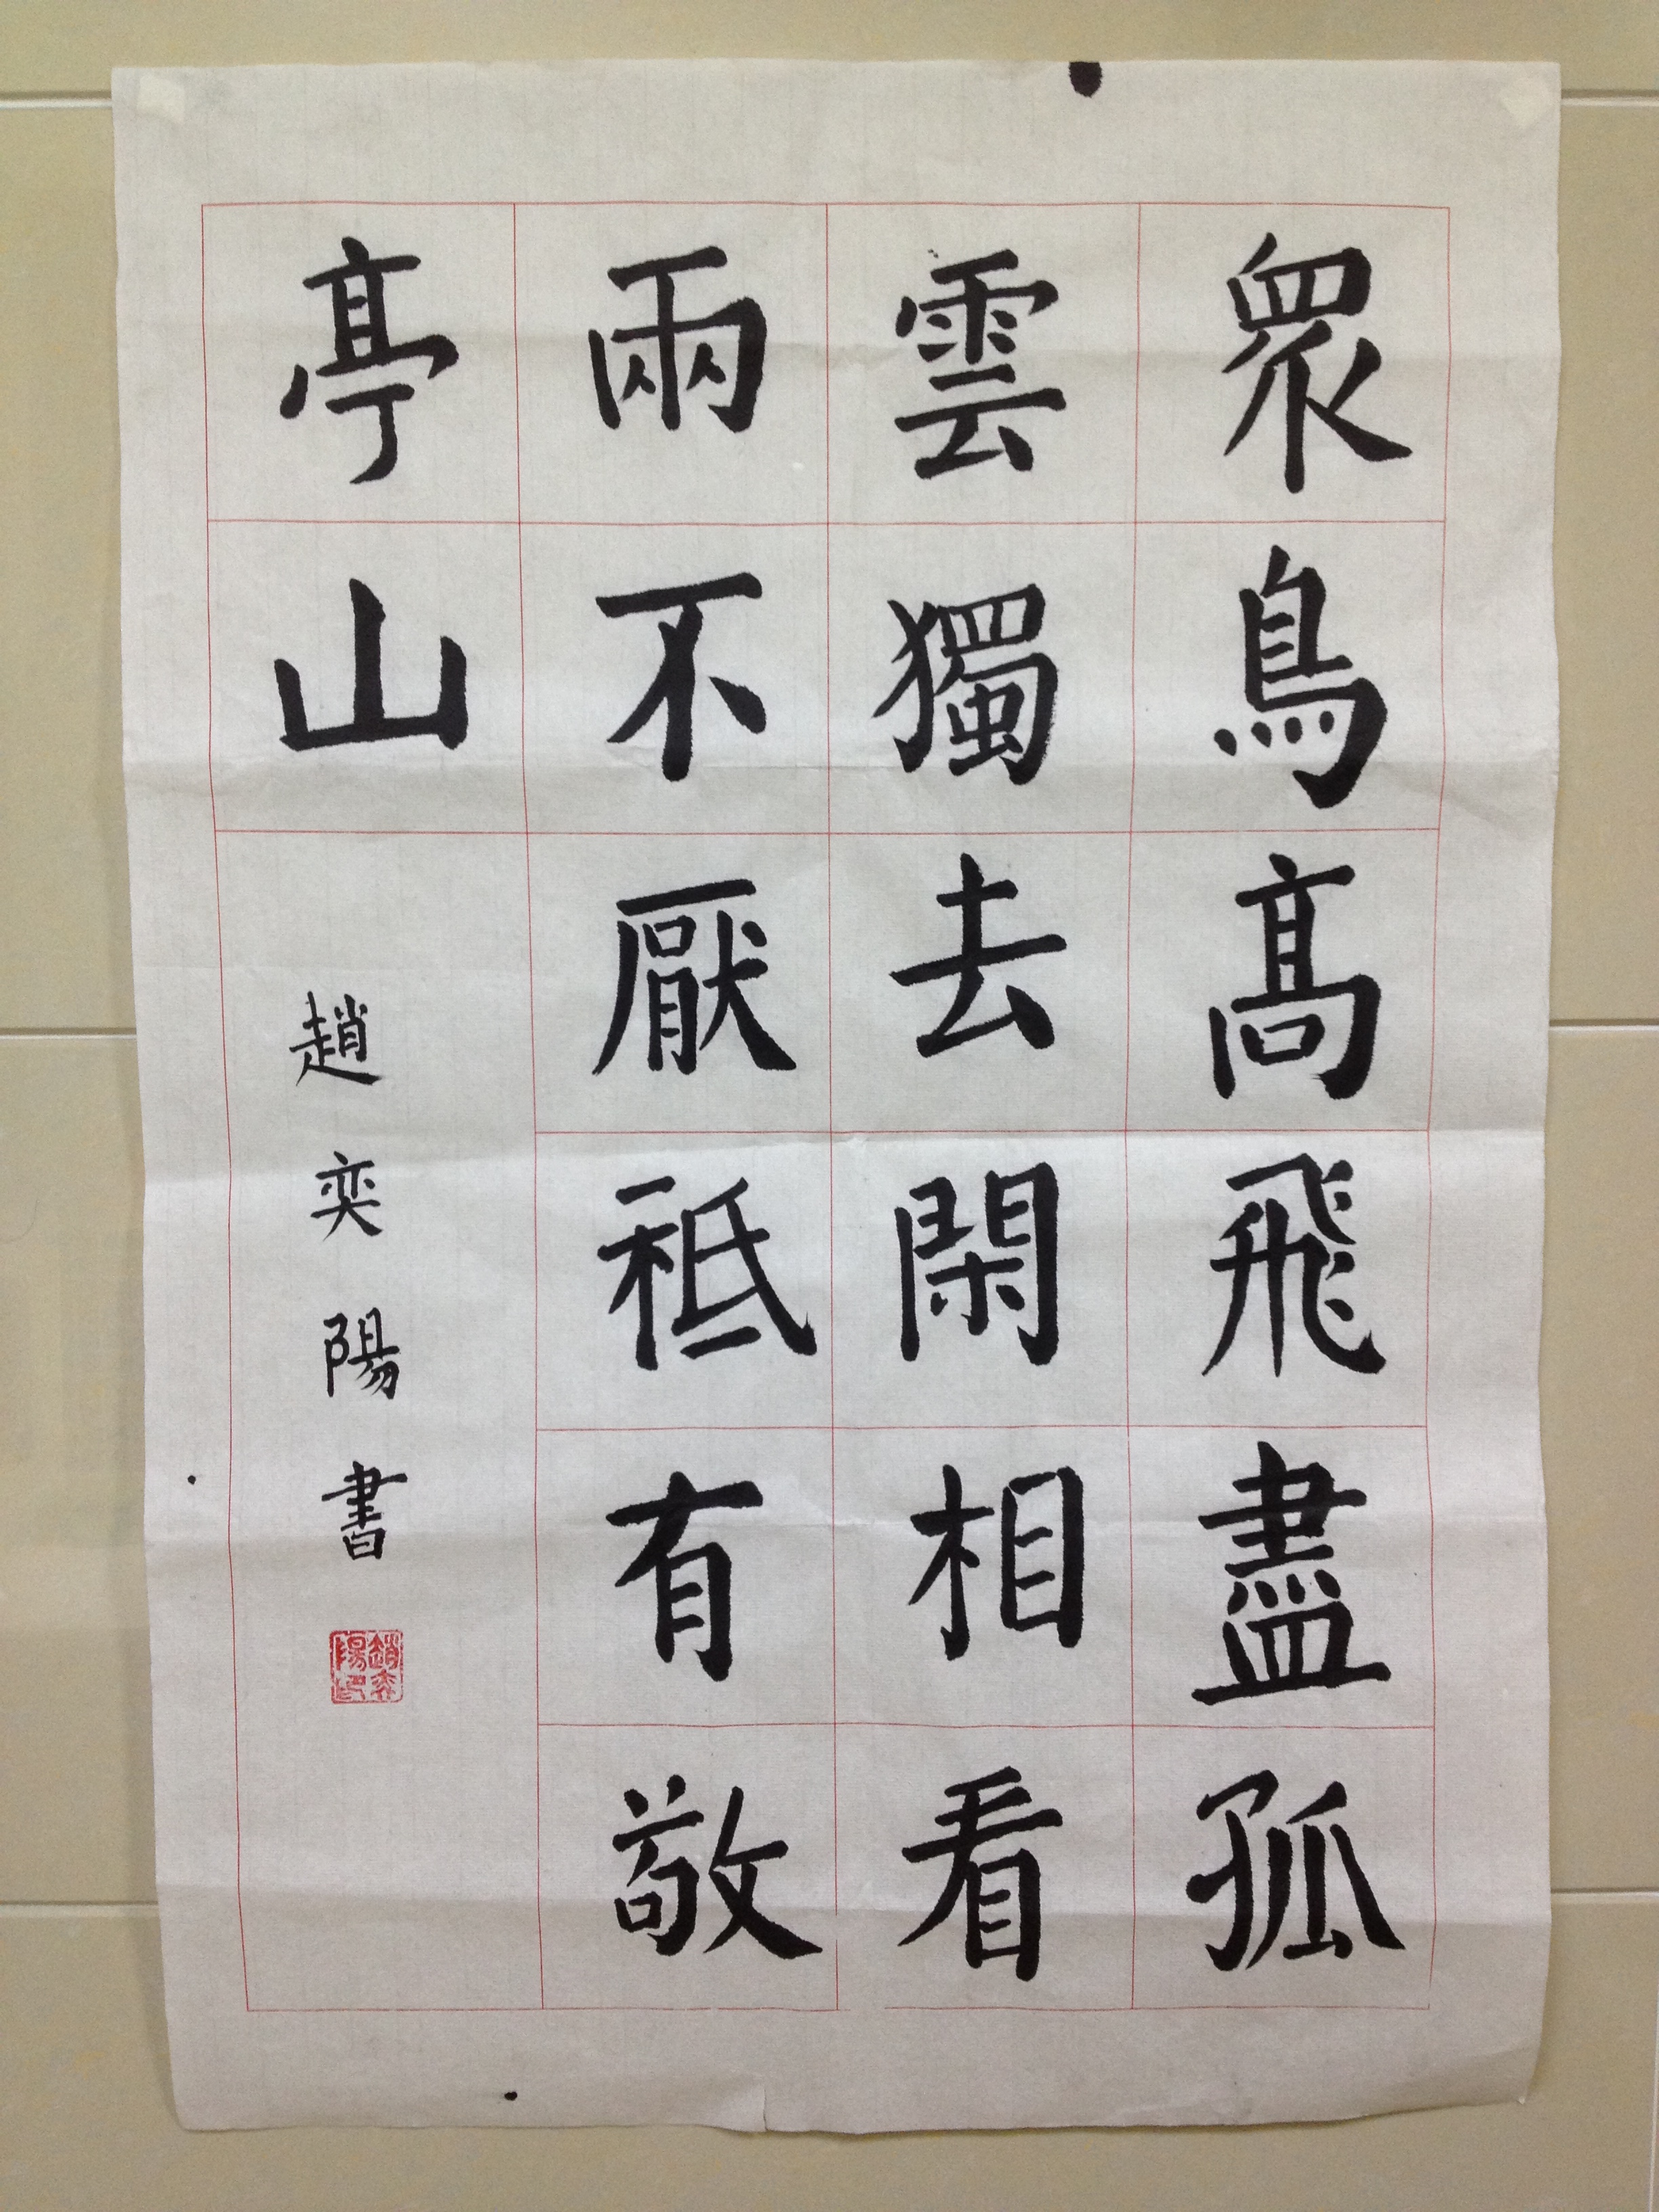 眾鳥高飛盡孤
雲獨去閑相看
兩不厭祗有敬
亭山
趙奕陽書
趙奕陽印